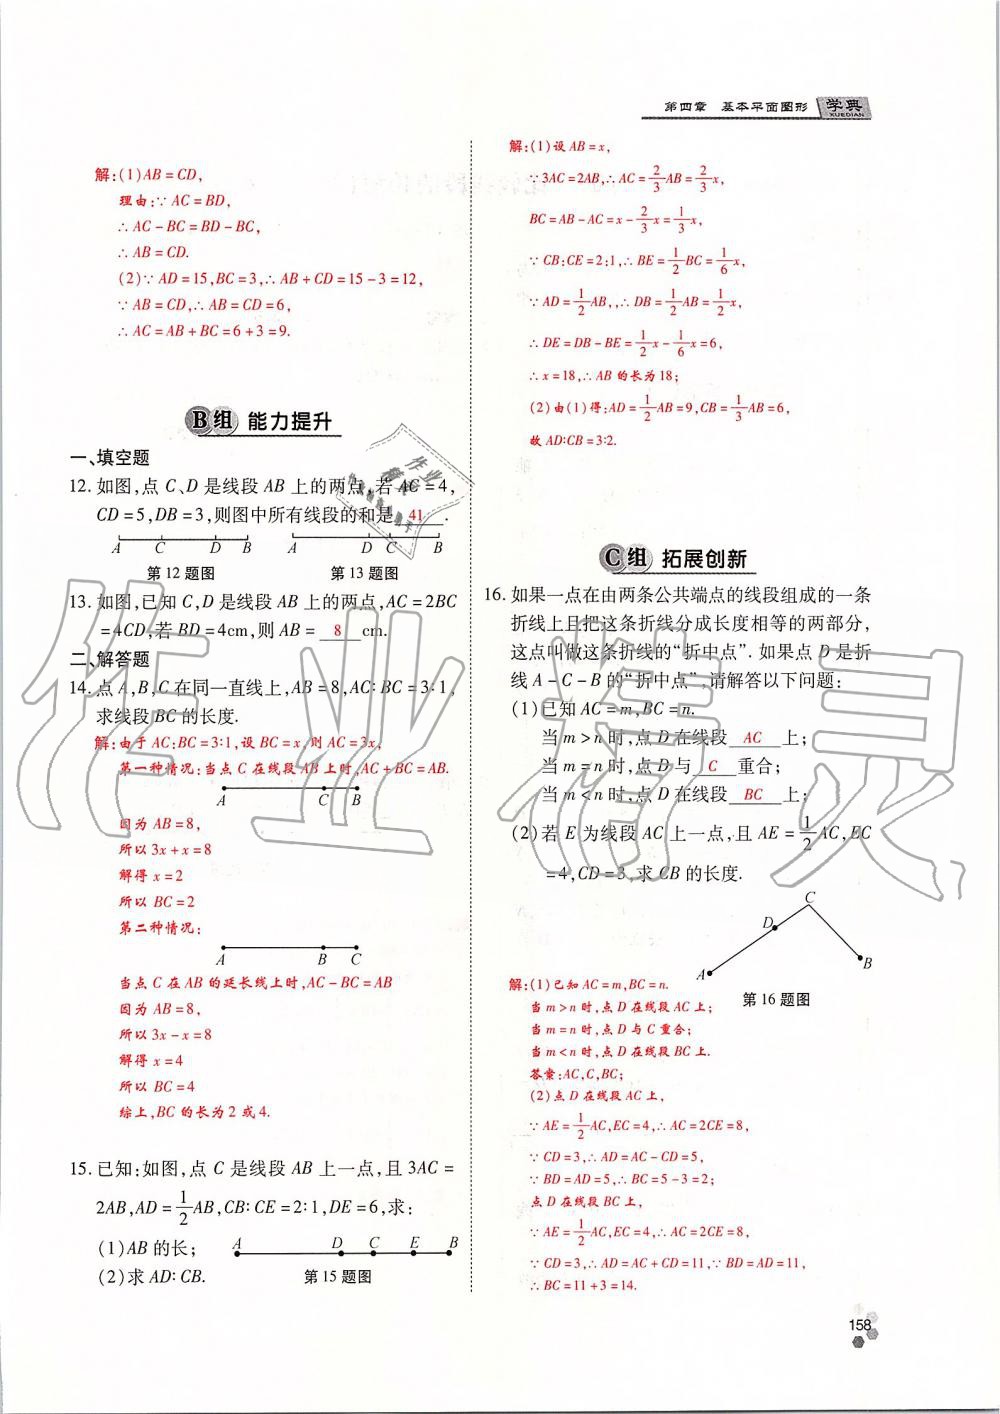 第四章 基本平面图形 学典
XUEDIAN
解:(1)AB=CD,
理由:∵AC=BD,
∴AC-BC=BD-BC,
∴AB=CD.
(2)∵AD=15,BC=3,∴AB+CD=15-3=12,
∵AB=CD,∴AB=CD=6,
∴AC=AB+BC=6+3=9.
B组 能力提升
一、填空题
12.如图,点C、D是线段AB上的两点,若AC=4,
CD=5,DB=3,则图中所有线段的和是 41 .
A C D B A D C B
第12题图 第13题图
13.如图,已知C,D是线段AB上的两点,AC=2BC
=4CD,若BD=4cm,则AB= 8 cm.
二、解答题
14.点A,B,C在同一直线上,AB=8,AC∶BC=3∶1,
求线段BC的长度.
解:由于AC:BC=3:1,设BC=x,则AC=3x,
第一种情况:当点C在线段AB上时,AC+BC=AB.
A C B
因为AB=8,
所以3x+x=8
解得x=2
所以BC=2
第二种情况:
A B C
当点C在AB的延长线上时,AC-BC=AB
因为AB=8,
所以3x-x=8
解得x=4
所以BC=4
综上,BC的长为2或4.
15.已知:如图,点C是线段AB上一点,且3AC=
2AB,AD=1/2AB,CB∶CE=2∶1,DE=6,求:
(1)AB的长;
(2)求AD∶CB.
A D C E B
第15题图
解:(1)设AB=x,
∵3AC=2AB,∴AC=2/3AB=2/3x,
BC=AB-AC=x-2/3x=1/3x,
∵CB:CE=2:1,∴BE=1/2BC=1/6x,
∵AD=1/2AB,,∴DB=1/2AB=1/2x,
∴DE=DB-BE=1/2x-1/6x=6,
∴x=18,∴AB的长为18;
(2)由(1)得:AD=1/2AB=9,CB=1/3AB=6,
故AD:CB=3:2.
C组 拓展创新
16.如果一点在由两条公共端点的线段组成的一条
折线上且把这条折线分成长度相等的两部分,
这点叫做这条折线的“折中点”.如果点D是折
线A-C-B的“折中点”,请解答以下问题:
(1)已知AC=m,BC=n.
当m>n时,点D在线段 AC 上;
当m=n时,点D与 C 重合;
当m<n时,点D在线段 BC 上;
(2)若E为线段AC上一点,且AE=1/2AC,EC
=4,CD=3,求CB的长度.
C
D
B
A
第16题图
解:(1)已知AC=m,BC=n.
当m>n时,点D在线段AC上;
当m=n时,点D与C重合;
当m<n时,点D在线段BC上.
答案:AC,C,BC;
(2)点D在线段AC上,
∵AE=1/2AC,EC=4,∴AC=2CE=8,
∵CD=3,∴AD=AC-CD=5,
∵BD=AD=5,∴BC=5-3=2;
点D在线段BC上,
∵AE=1/2AC,EC=4,∴AC=2CE=8,
∵CD=3,∴AD=AC+CD=11,∵BD=AD=11,
∴BC=11+3=14.
158
作业精灵